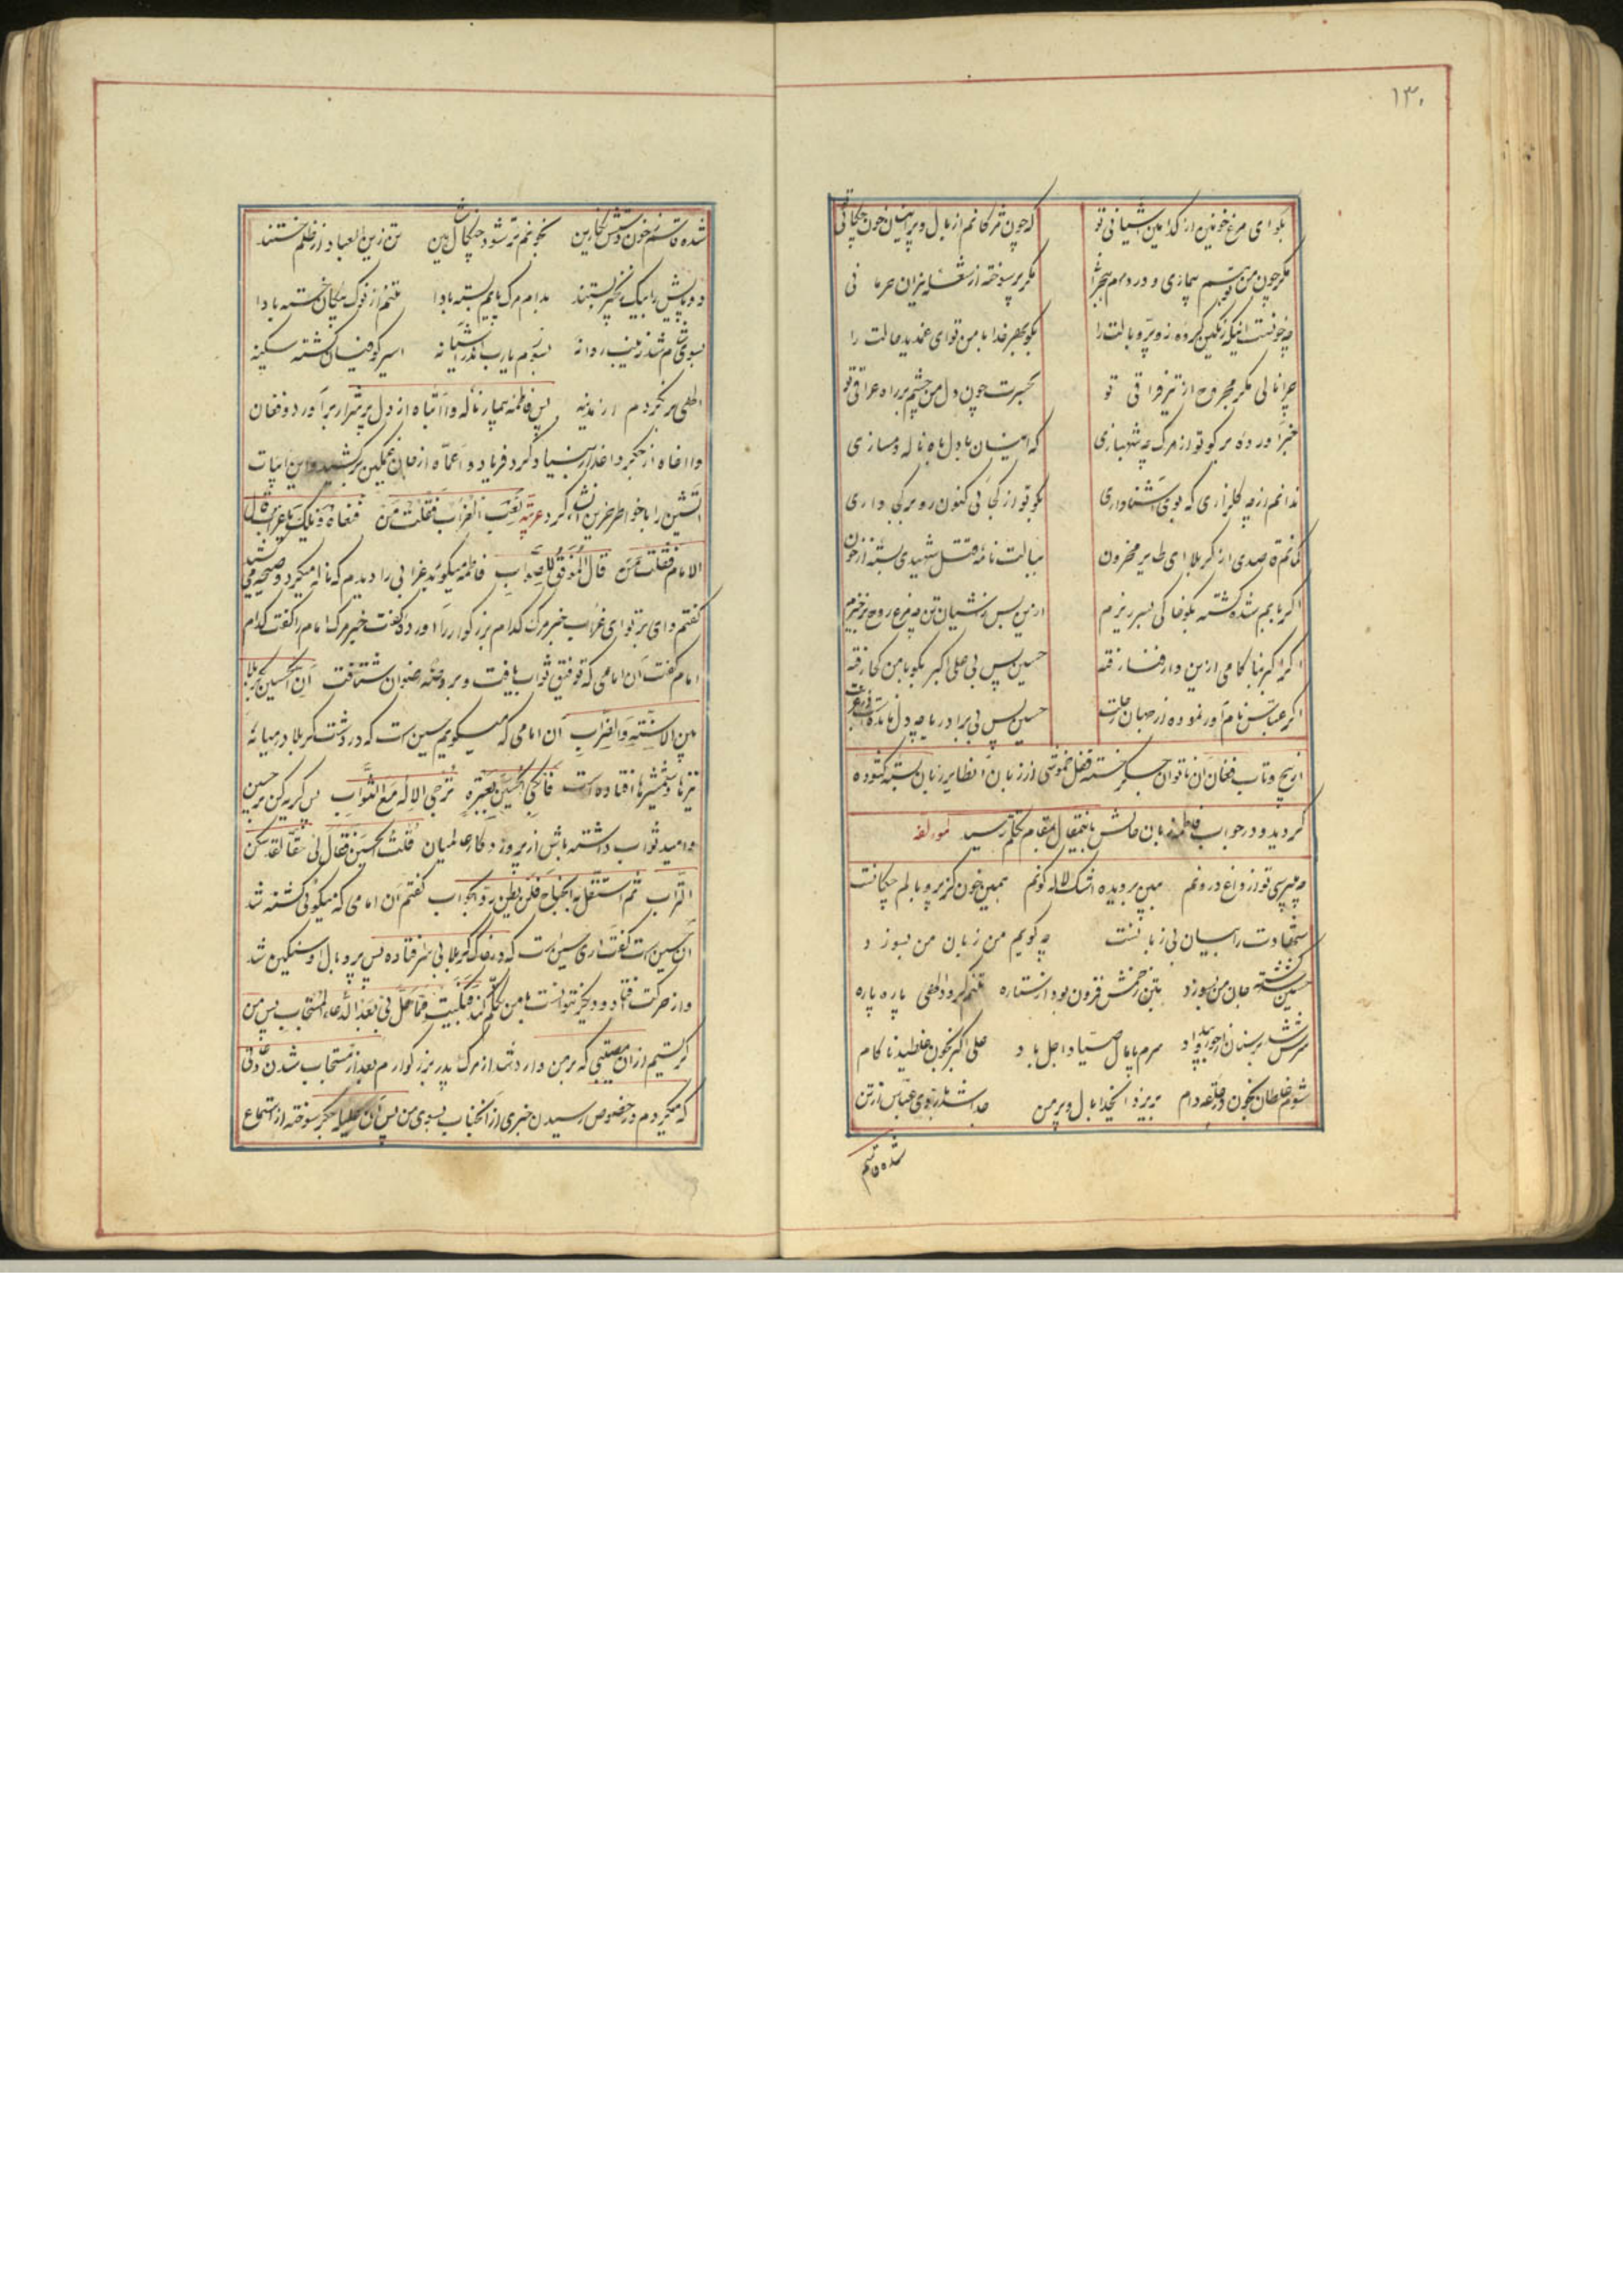 ۱۳۰
بگو ای مرغ خونین از کدامین آشیانی تو که چون مژگانم از بال و پر اینسان خون چکانی
مگر چون من تو هم بیماری و در دام هجرانی مگر پر سوخته از شعله نیران حرمانی
چه خونست اینکه رنگین کرده زو پر و بالت را بگو بهر خدا با من تو ای غمدیده حالت را
چرا نالی مگر مجروح از تیر فراقی تو بحسرت چون دل من چشم بر راه عراقی تو
خبر آورده بر گو تو از مرگ چه شهبازی که اینسان با دل ما به ناله دمسازی
ندانم از چه گلزاری که بوی آشنا داری بگو تو از کجائی کنون رو بر کجا داری
گمانم قاصدی از کربلا ای طایر محزون ببالت نامه قتل شهیدی بسته از خون
اگر بابم شده کشته بگو خاکی بسر ریزم ازین پس ز آشیان تن چو مرغ روح برخیزم
اگر اکبر بناکامی ازین دار فنا رفته حسین پس بی علی اکبر بگو با من کجا رفته
اگر عباس نام آور نموده از جهان رحلت حسین پس بی برادر با چه دل مانده
از پیچ و تاب فغان آن ناتوان جگر خسته قفل خموشی از زبان آنطایر زبان بسته گشوده
گردیده و در جواب فاطمه زبان حالش باینمقال بمقام تکلم رسید لمؤلفه
چه میپرسی تو از داغ درونم ببین بر دیده اشک لاله گونم همین خون کز پر و بالم چکانست
شهادت را بیان بی زبانست چه گویم من زبان من بسوزد
حسین کشته جان من بسوزد بتن زخمش فزون بود از ستاره تنم گردد الهی پاره پاره
سرش بر سنان سرم پامال صیاد اجل باد علی اکبر بخون غلطید ناکام
شوم غلطان بخون در حلقه دام بریز ای خدا بال و پر من جدا شد بازوی عباس از تن
شده قاسم
شده قاسم ز خون دستش نگارین بخونم تر شود چنگال شاهین تن زین العباد از ظلم خستند
دو پایش را بیک زنجیر بستند بدام مرگ پایم بسته بادا تنم از نوک پیکان خسته بادا
بسوی شام شد زینب روانه بسوزم یارب اندر آشیانه اسیر کوفیان گشته سکینه
الهی برنگردم از مدینه پس فاطمه بیمار ناله وا ابتاه از دل پر شرار برآورد و فغان
وا اخاه از جگر داغدار بنیاد کرد فریاد و اعماه از جان غمگین بر کشید و این ابیات
آتشین را با خواطر حزین انشاء کرد عربیه نعب الغراب فقلت من تنعاه ویلک یا غراب قال
الامام فقلت من قال الموفق للصواب فاطمه میگوید غرابی را دیدم که ناله میکرد و صیحه میکشید
گفتم وای بر تو ای غراب خبر مرگ کدام بزرگوار را آورده گفت خبر مرگ امام را گفتم کدام
امام گفت آن امامی که توفیق ثواب یافت و بروضه رضوان شتافت ان الحسین بکربلا
بین الاسنة والضراب آن امامی که میگویم حسین است که در دشت کربلا در میانه
تیرها و شمشیرها افتاده است فابکی الحسین بعبرة ترجی الاله مع الثواب پس گریه کن بر حسین
و امید ثواب داشته باش از پروردگار عالمیان قلت الحسین فقال لی حقا لقد سکن
التراب ثم استقل به الجناح فلم یطق رد الجواب گفتم آن امامی که میگوئی کشته شد
آن حسین است گفت آری حسین است که در خاک کربلا بی سر فتاده پس پر و بال او سنگین شد
و از حرکت فتاد و دیگر نتوانست با من تکلم کند فبکیت مما حل بی بعد الدعاء المستجاب پس من
گریستم از آن مصیبتی که بر من وارد شد از مرگ پدر بزرگوارم بعد از مستجاب شدن دعائی
که میکردم در خصوص رسیدن خبری از آنجناب بسوی من پس آن علیله جگر سوخته از استماع